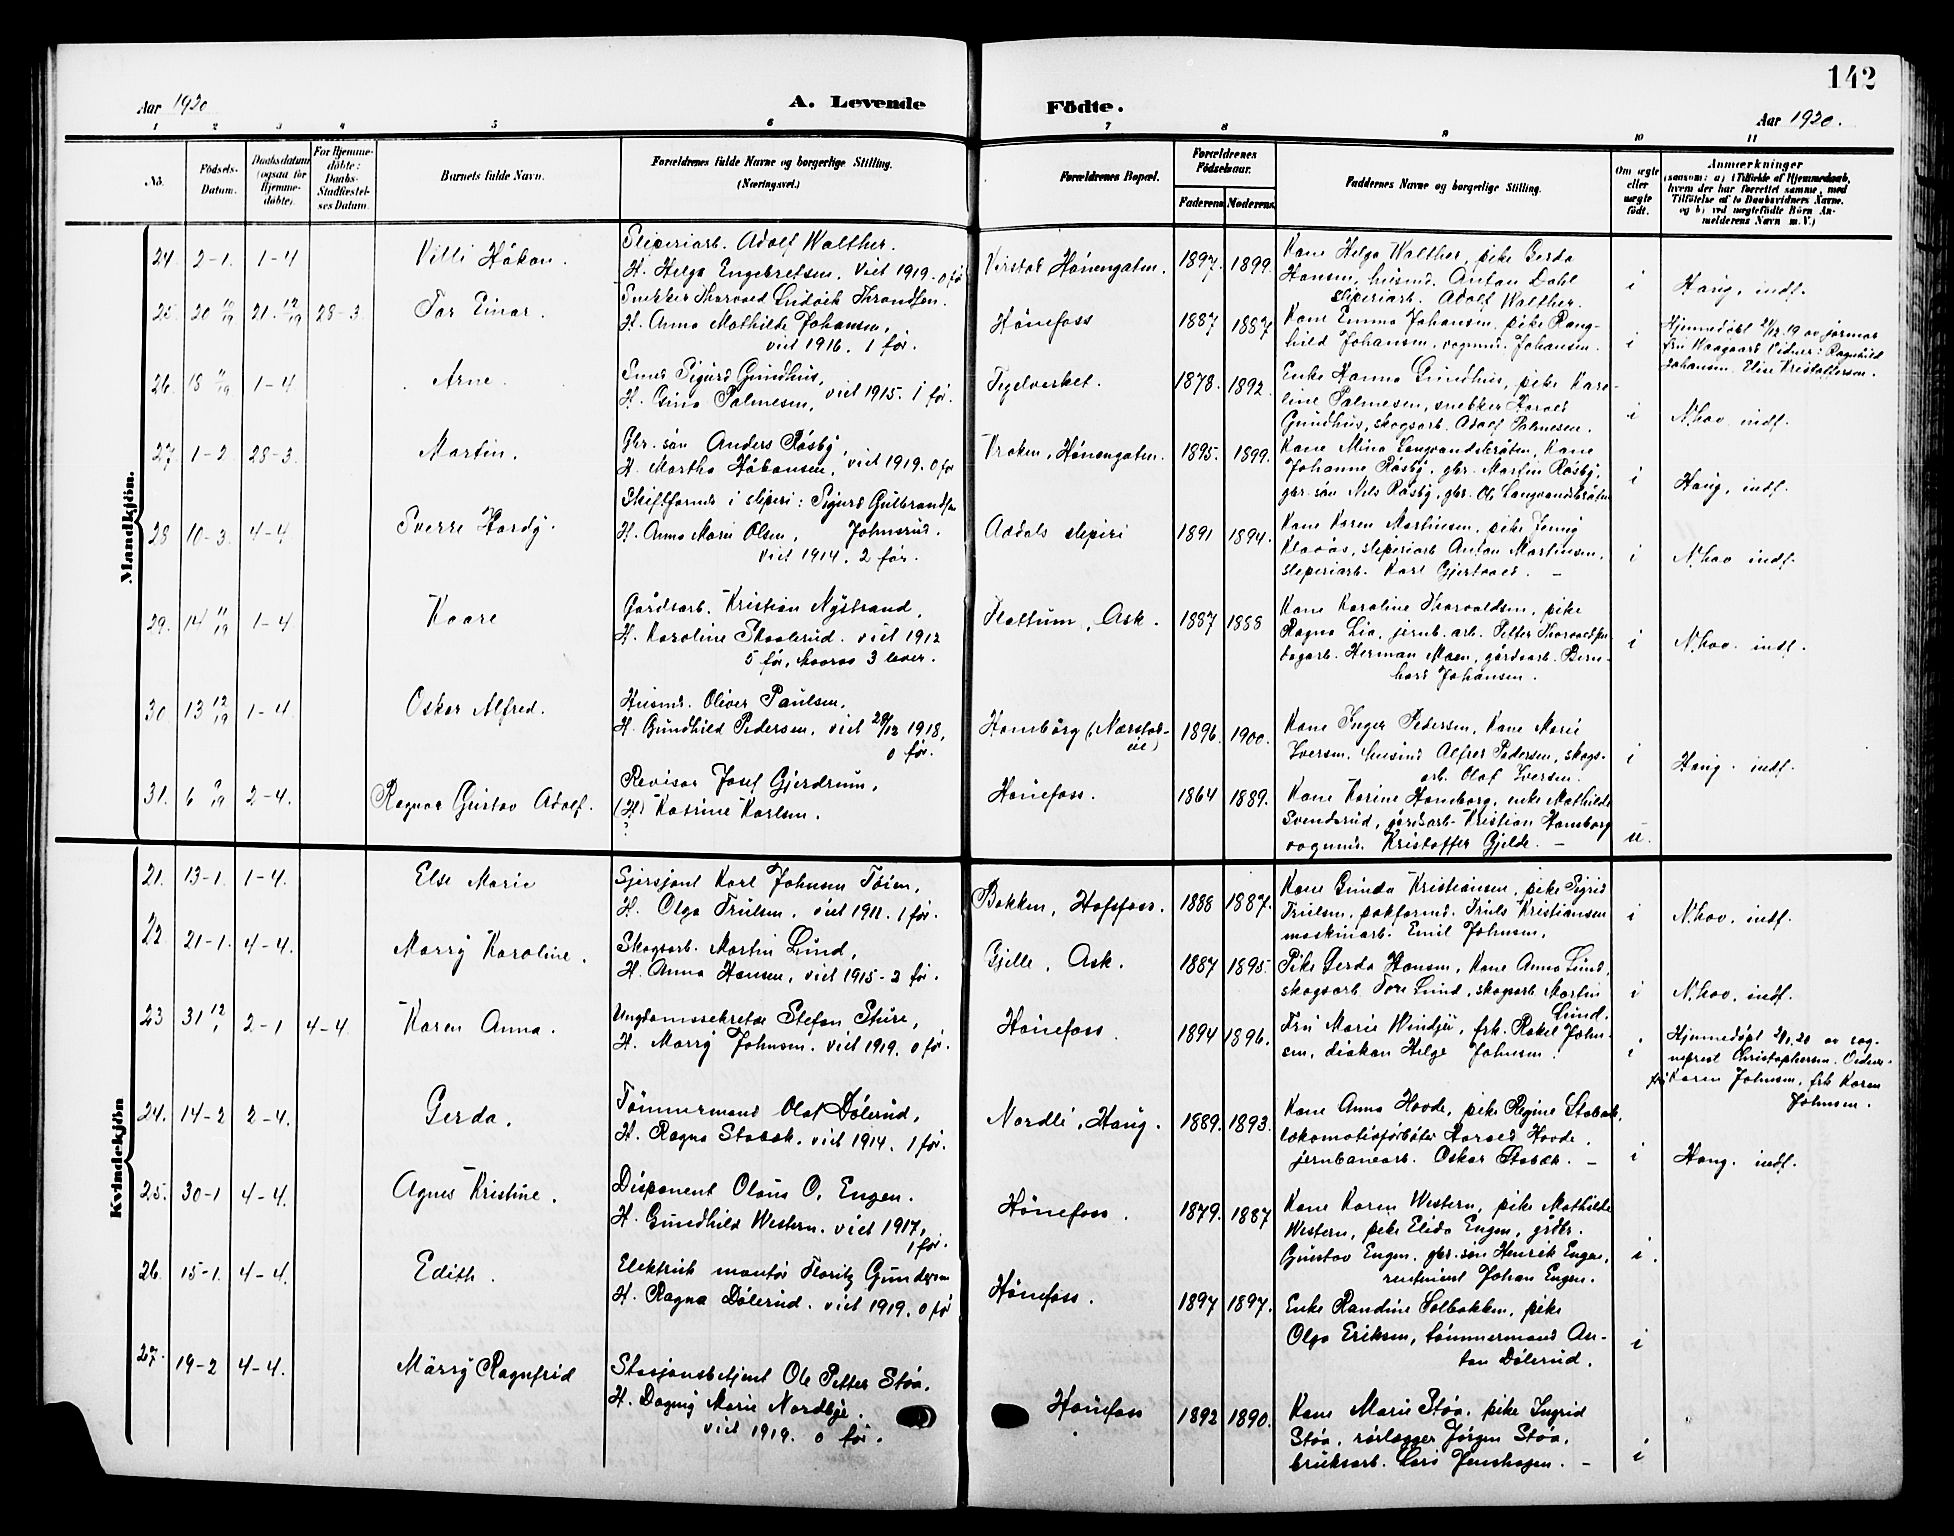 142
Aar 1920
A. Levende Födte.
Aar 1920.
1 2 3 4 5 6 7 8 9 10 11
No.
Födsels-
Datum.
Daabsdatum
(ogsaa for
Hjemme-
döbte).
For Hjemme-
döbte:
Daabs-
Stadfæstel-
ses Datum.
Barnets fulde Navn.
Forældrenes fulde Navne og borgerlige Stilling.
(Næringsvei.)
Forældrenes Bopæl.
Forældrenes
Födselsaar.
Faderens
Moderens
Faddernes Navne og borgerlige Stilling.
Om ægte
eller
uægte
födt.
Anmærkninger
(saasom: a) i Tilfælde af Hjemmedaab,
hvem der har forrettet samme, med
Tilföielse af to Daabsvidners Navne,
og b) ved uægtefödte Börn An-
melderens Navn m. V.)
Mandkjön.
24. 2-1. 1-4 Villi Håkon.
Sliperiarb. Adolf Walther.
H. Helga Engebretsen. viet 1919. 0 før
Hønengaten. 1897. 1899.
Kone Helga Walther, pike Gerda
Hansen, husmd. Anton Dahl
sliperiarb. Adolf Walther.
i Haug, indf.
25. 20 12/19 21. 12/19 28-3. Tor Einar.
Snekker Thorvald Ludvik Throndsen.
H. Anna Mathilde Johansen,
viet 1916. 1 før.
Hønefoss 1887 1887
Kone Emma Johansen, pike Rang-
hild Johansen, vognmd. Johansen.
i Hjemmedøbt 21/12 19 av jormor
fru Haagaard Vidner: Ragnhild
Johansen, Elise Kristoffersen.
26. 18 11/19 1-4 Arne.
Smed Sigurd Gundhus,
H. Gina Palmesen, viet 1915. 1 før.
Teglverket. 1878. 1892.
Enke Hanna Gundhus, pike Karo-
line Palmesen, snekker Harald
Gundhus, skogsarb. Adolf Palmesen.
i N.hov indf.
27. 1-2 28-3. Martin.
Gbr. søn Anders Røsby,
H. Martha Håkonsen, viet 1919. 0 før
Kroken, Hønengaten. 1895. 1899.
Kone Mina Langvandsbråten, Kone
Johanne Røsby, gbr. Martin Røsby,
gbr. søn Nils Røsby, gbr. Ole Langvandsbråten
i Haug, indf.
28 10-3. 4-4. Sverre Hardy.
Skiftformd i sliperi: Sigurd Gulbrandsen
H. Anna Marie Olsen, Johnsrud.
viet 1914. 2 før.
Aadals sliperi 1891 1894.
Kone Karen Martinsen, pike Jenny
sliperiarb Anton Martinsen,
sliperiarb. Karl Gjertvad. –
i N.hov indf.
29. 14 11/19 1-4 Kaare
Gårdsarb. Kristian Nystrand,
H. Karoline Skoalerud. viet 1912
5 før, hvorav 3 lever.
Flattum, Ask. 1887 1888
Kone Karoline Thorvaldsen, pike
Ragna Lia, jernb. arb. Petter Thorvaldsen
bagarb. Herman Moen, gårdsarb. Bern-
hard Johansen.
i N.hov. indf.
30. 13 12/19 1-4. Oskar Alfred.
Husmd. Oliver Paulsen,
H. Gundhild Pedersen, viet 28/12 1918,
0 før.
Hamborg 1896. 1900.
Kone Inger Pedersen, Kone Marie
Iversen, husmd Alfred Pedersen, skogs-
arb. Olaf Iversen.
i Haug. indf.
31. 6 9/19 2-4. Ragnar Gustav Adolf.
Revisor Josef Gjerdrum,
(H) Katrine Karlsen.
?
Hønefoss. 1864 1889.
Kone Karine Hamborg, enke Mathilde
Svendsrud, jordarb. Kristian Hamborg
vognmd. Kristoffer Gjelde. –
u.
Kvindekjön
21. 13-1. 1-4. Else Marie
Sjersjant Karl Johnsen Toien,
H. Olga Trulsen, viet 1911. 1 før.
Bakken, Hofsfoss. 1888 1887.
Kone Gunda Kristiansen, pike Sigrid
Trulsen, pakformd. Truls Kristiansen
maskinarb. Emil Johnsen,
i N.hov, indf.
22 21-1. 4-4. Marry Karoline.
Skogsarb. Martin Lund,
H. Anna Hansen, viet 1915 - 2 før.
Gjelle, Ask. 1887 1895.
Pike Gerda Hansen, Kone Anna Lund,
skogsarb. Tore Lund, skogsarb Martin
Lund.
i N.hov, indf.
23 31 12 2-1 4-4. Karen Anna.
Ungdomssekretær Stefan Sture,
H. Marry Johnsen. viet 1919. 0 før.
Hønefoss. 1894 1896.
Fru Marie Windju, frk. Rakel John-
sen, diakon Helge Johnsen.
i Hjemmedøpt 2/1.20 av sog-
neprest Christophersen. Vidner:
fru Karen Johnsen, frk Karen
Johnsen.
24. 14-2 2-4. Gerda.
Tømmermand Olaf Dølerud,
H. Ragna Stabæk. viet 1914. 1 før.
Nordli, Haug. 1889. 1893.
Kone Anna Hovde, pike Regine Stabæk,
lokomotivførbøter Harald Hovde,
jernbanearb. Oskar Stabæk. –
i Haug. indf.
25. 30-1 4-4. Agnes Kristine.
Disponent Olaus O. Engen.
H. Gundhild Western. viet 1917,
1 før.
Hønefoss. 1879. 1887
Kone Karen Western, pike Mathilde
Western, pike Elida Engen, grdbr.
Gustav Engen. gbr. søn Henrik Engen,
rentenist Johan Engen.
i.
26. 15-1. 4-4. Edith.
Elektrisk montør Floritz Gundersen
H. Ragna Dølerud. viet 1919. 0 før
Hønefoss. 1897 1897.
Enke Randine Solbakken, pike
Olga Eriksen, tømmermand An-
ton Dølerud.
i
27. 19-2 4-4. Marry Ragnfrid
Stasjonsbetjent Ole Petter Støa.
H. Dagny Marie Nordbye.
viet 1919. 0 før.
Hønefoss 1892 1890.
Kone Marie Støa, pike Ingrid
Støa, rørlægger Jørgen Støa,
bruksarb. Lars Jenshagen. –
i